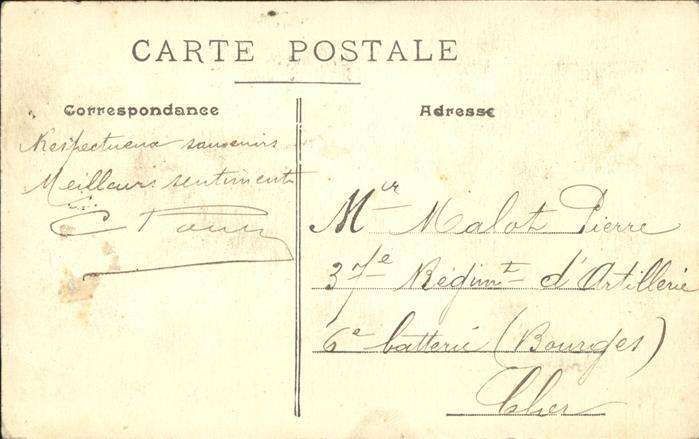 CARTE POSTALE
Correspondance
Respectueux souvenirs
Meilleurs sentiments
C
Adresse
Mr Malot Pierre
37e Régimt d'Artillerie
6e batterie (Bourges)
Cher